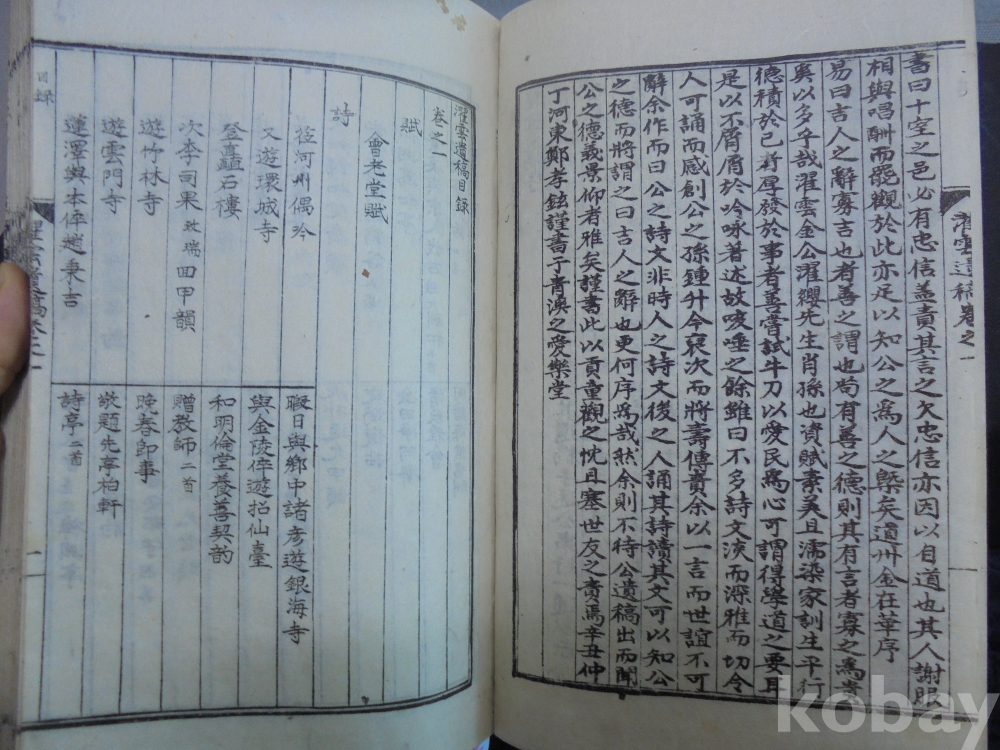 書曰十室之邑必有忠信盖責其言之欠忠信亦因以自道也其人謝眼
相與唱酬而罷觀於此亦足以知公之爲人之槩矣道州金在華序
易曰吉人之辭寡吉也者善之謂也苟有善之德則其有言者寡之爲貴
矣以多乎哉濯雲金公濯纓先生肖孫也資賦素美且濡染家訓生平行
德積於己者厚發於事者善嘗試牛刀以愛民爲心可謂得學道之要耳
是以不屑屑於吟咏著述故咳唾之餘雖曰不多詩文淡而深雅而切令
人可誦而感創公之孫鍾升今裒次而將壽傳責余以一言而世誼不可
辭余作而曰公之詩文非時人之詩文後之人誦其詩讀其文可以知公
之德而將謂之曰吉人之辭也更何序爲哉然余則不待公遺稿出而聞
公之德義景仰者雅矣謹書此以貢重觀之忱且塞世友之責焉辛丑仲
丁河東鄭孝鉉謹書于青溪之愛樂堂
濯雲遺稿卷之一
濯雲遺稿目録
卷之一
賦
會老堂賦
詩
徑河州偶吟
暇日與鄉中諸彦遊銀海寺
又遊環城寺
與金陵倅遊招仙臺
登矗石樓
和明倫堂養善契韵
次李司果 致瑞 回甲韻
贈教師 二首
遊竹林寺
晩春即事
遊雲門寺
敬題先亭柏軒
蓮潭與本倅趙秉吉
詩亭 二首
目録
濯雲遺稿卷之一
一
kobay